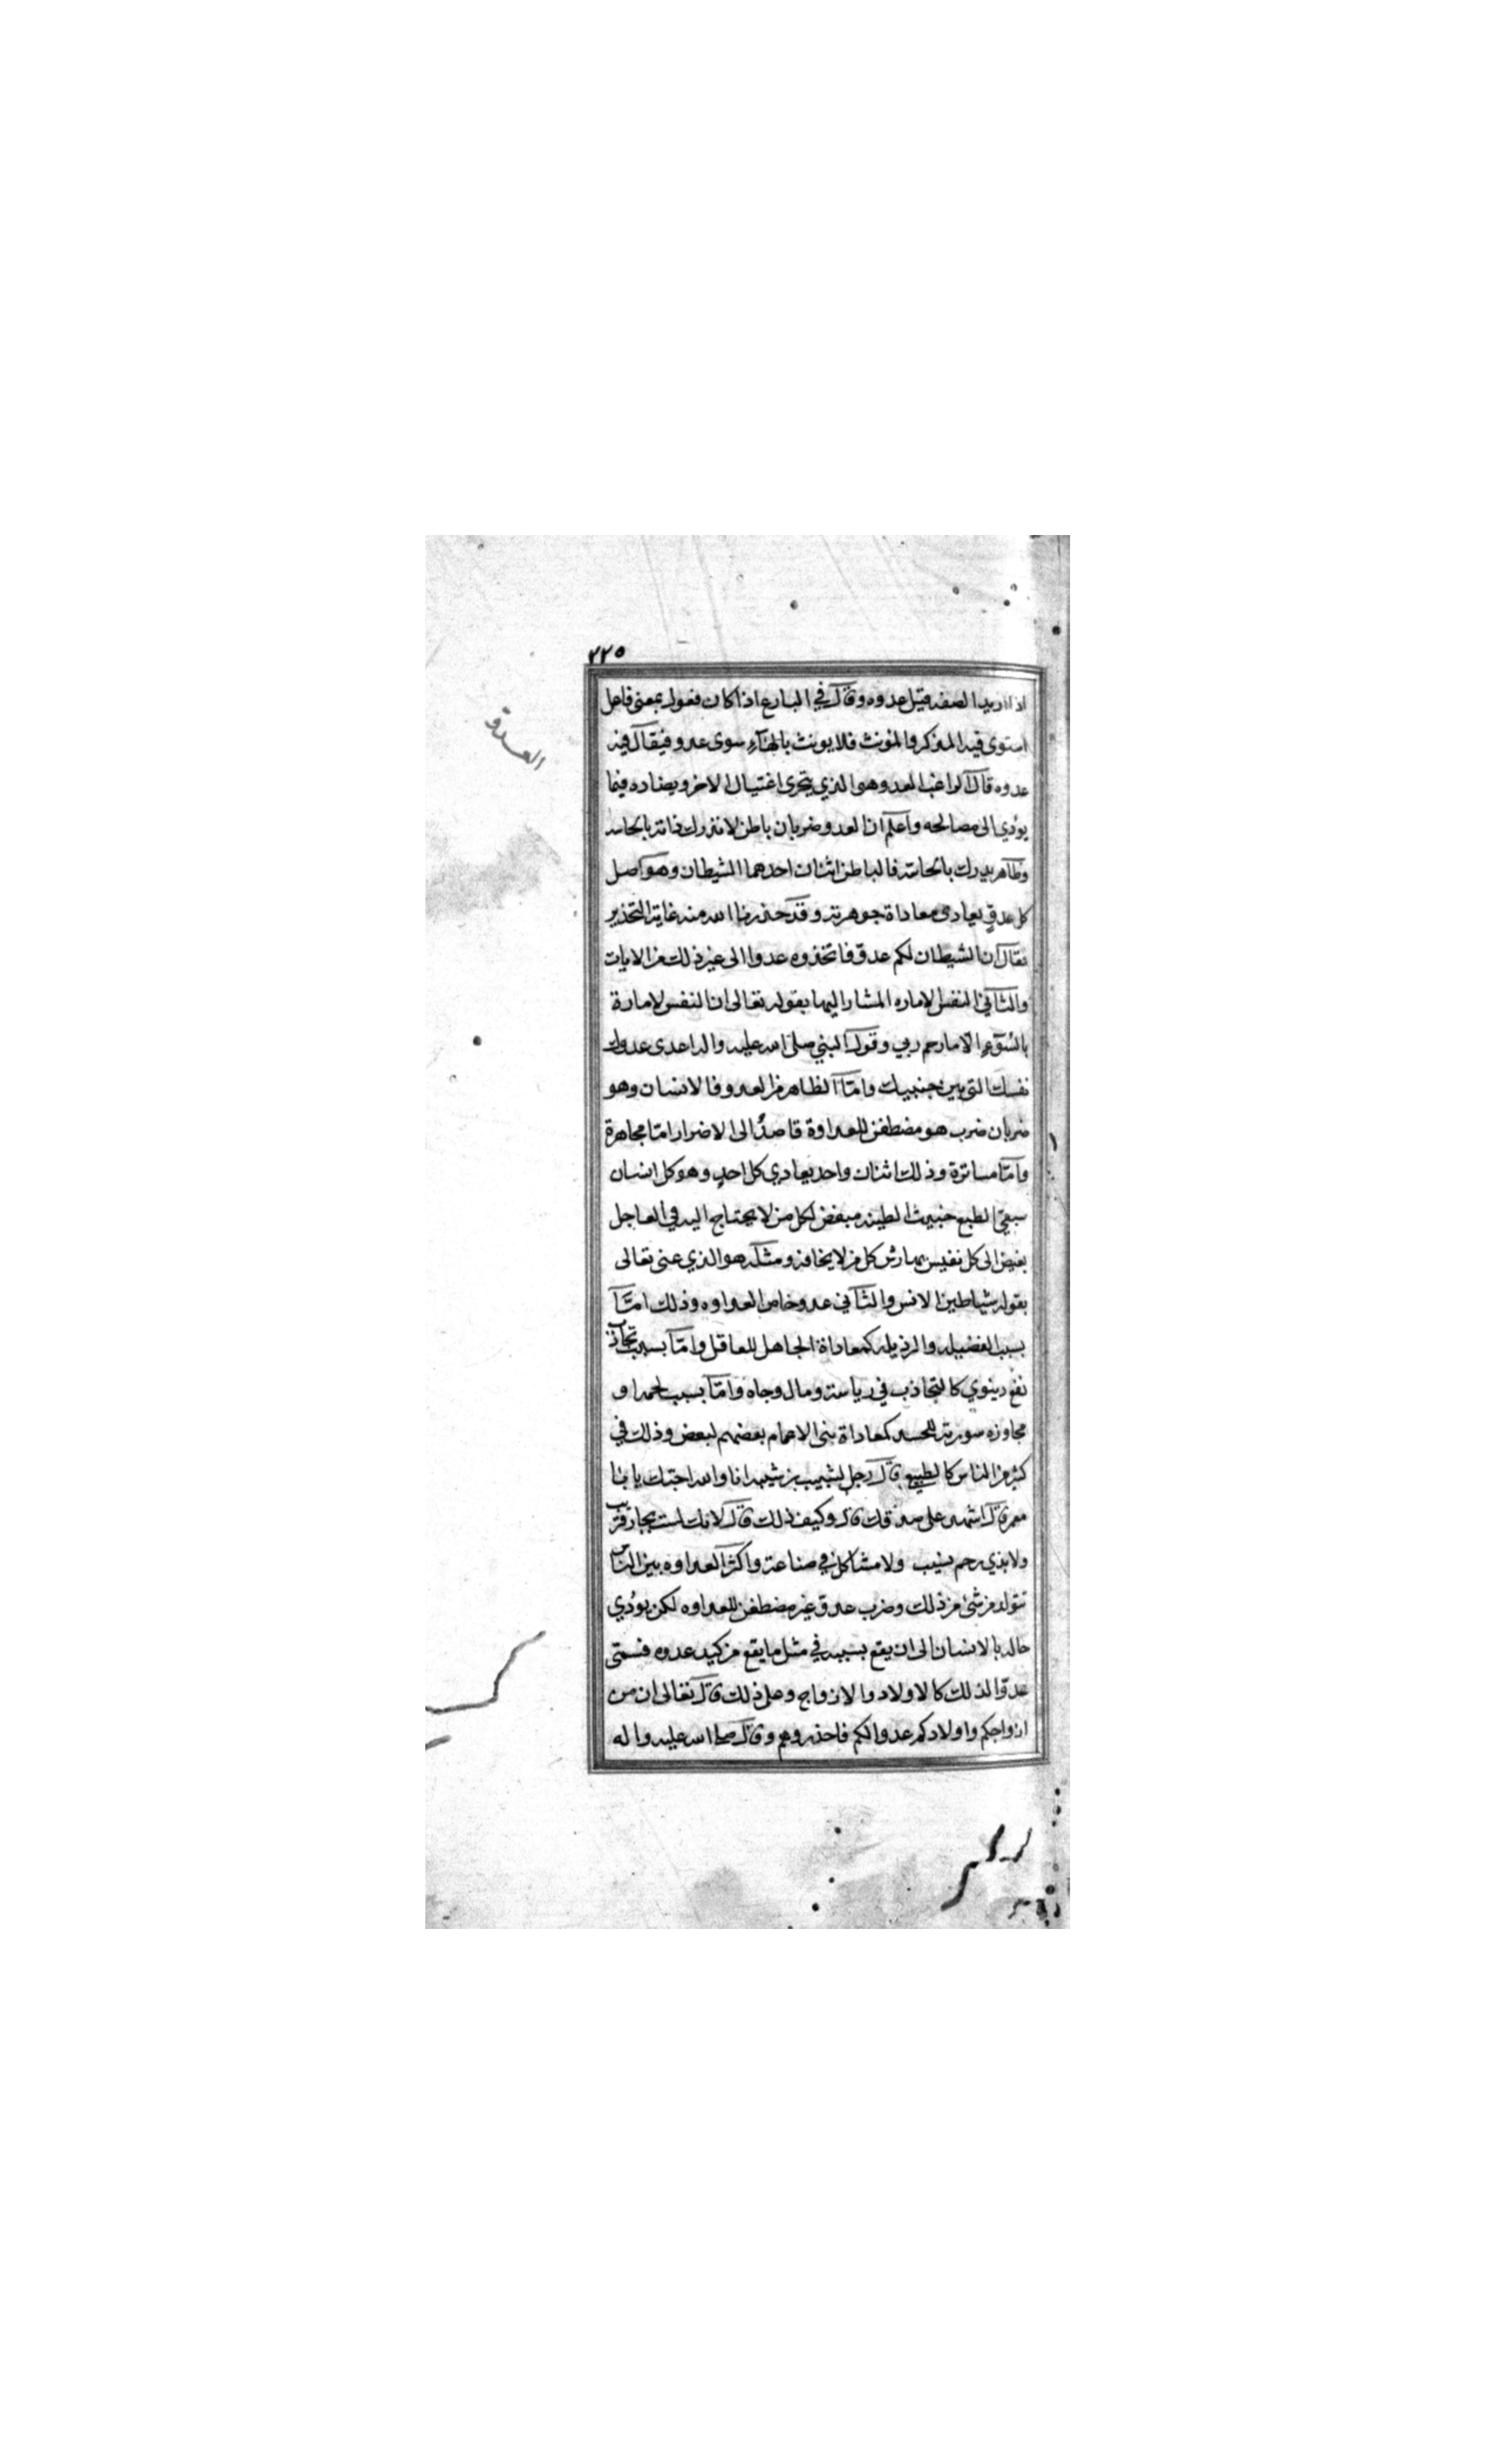 ٢٢٥
اذا اريد الصفه قيل عدوه وقال في البارع اذا كان فعول بمعنى فاعل
استوى فيه المذكر والمونث فلا يونث بالهآء سوى عدو فيقال فيه
عدوه قال الراغب العدو هو الذي يتحرى اغتيال الاخر ويضاده فيما
يؤدي الى مصالحه واعلم ان العدو ضربان باطن لا تدرك ذاته بالحاسه
وظاهر يدرك بالحاسة فالباطن اثنان احدهما الشيطان وهو اصل
كل عدوٍ يعادى معاداة جوهرية وقد حذرنا الله منه غاية التحذير
فقال ان الشيطان لكم عدوّ فاتخذوه عدوا الى غير ذلك من الايات
والثاني النفس الاماره المشار اليها بقوله تعالى ان النفس لامارة
بالسّوٓءِ الّا ما رحم ربي وقول النبي صلى الله عليه واله اعدى عدوك
نفسك التي بين جنبيك وامّا الظاهر من العدو فالانسان وهو
ضربان ضرب هو مضطغن للعداوة قاصدٌ الى الاضرار امّا مجاهرة
وامّا مساترة وذلك اثنان واحد يعادي كل احدٍ وهو كل انسان
سبعيّ الطبع خبيث الطينه مبغض لكل من لا يحتاج اليه في العاجل
بغيض الى كل نفيس يهارش كل من لا يخافه ومثله هو الذي عنى تعالى
بقوله شياطين الانس والثاني عدو خاص العداوه وذلك امّا
بسبب الفضيله والرذيله كمعاداة الجاهل للعاقل وامّا بسبب تجاذب
نفع دينوي كالتجاذب في رياسة ومال وجاه وامّا بسبب لحمه او
مجاوره مورثة للحسد كمعاداة بنى الاعمام بعضهم لبعض وذلك في
كثير من الناس كالطبيع قال رجل لشبيب بن شيبه انا والله احبك يا ابا
معمر قال اشهد على صدقك قال وكيف ذلك قال لانك لست بجار قريب
ولا بذي رحم نسيب ولا مشاكل في صناعة واكثر العداوه بين الناس
تتولد من شئ من ذلك وضرب عدوّ غير مضطغن للعداوه لكن يؤدي
حاله بالانسان الى ان يقع بسببه في مثل ما يقع من كيد عدوه فسمّى
عدوّا لذلك كالاولاد والازواج وعلى ذلك قال تعالى ان من
ازواجكم واولادكم عدوا لكم فاحذروهم وقال صلى الله عليه واله
العدوّ